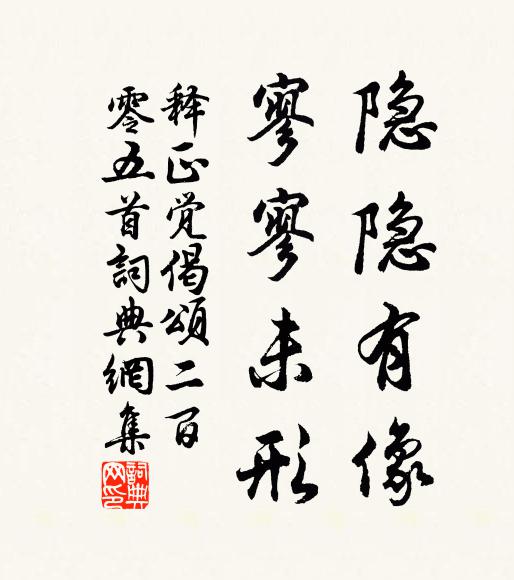 隐隐有像
寥寥未形
释正觉偈颂二百
零五首詞典網集
詞典网印